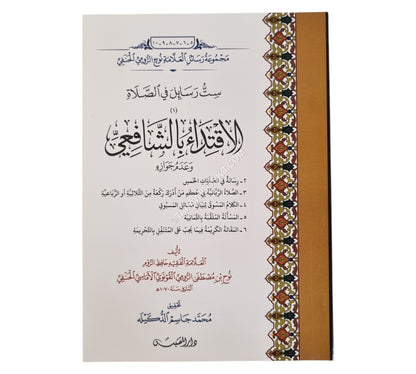 ٥-٦-٧-٨-٩-١٠
مَجْمُوعَةُ رَسَائِلِ العَلَّامَةِ نُوحٍ الرُّومِيِّ الحَنَفِيِّ
سِتُّ رَسَائِل فِي الصَّلَاةِ
(١)
الاقْتِدَاءُ بِالشَّافِعِيِّ
وَعَدَمُ جَوَازِهِ
٢- رِسَالَةٌ فِي
٣- الصَّلَاةُ الرَّبَّانِيَّةُ فِي حُكْمِ مَنْ أَدْرَكَ رَكْعَةً مِنَ الثُّلَاثِيَّةِ أَوِ الرُّبَاعِيَّةِ
٤- الكَلَامُ المَسْبُوقُ لِبَيَانِ مَسَائِلِ المَسْبُوقِ
٥- المَسْأَلَةُ المُلَقَّبَةُ بِالثَّمَانِيَةِ
٦- المَقَالَةُ الكَرِيمَةُ فِيمَا يَجِبُ عَلَى المُتَنَفِّلِ بِالتَّحْرِيمَةِ
تَأْلِيفُ
العَلَّامَةِ الفَقِيهِ حَافِظِ الرُّومِ
نُوحِ بْنِ مُصْطَفَى الرُّومِيِّ القُونَوِيِّ الأَمَاسِيِّ الحَنَفِيِّ
المُتَوَفَّى سَنَةَ ١٠٧٠هـ
تَحْقِيقُ
مُحَمَّد جَاسِم
دار